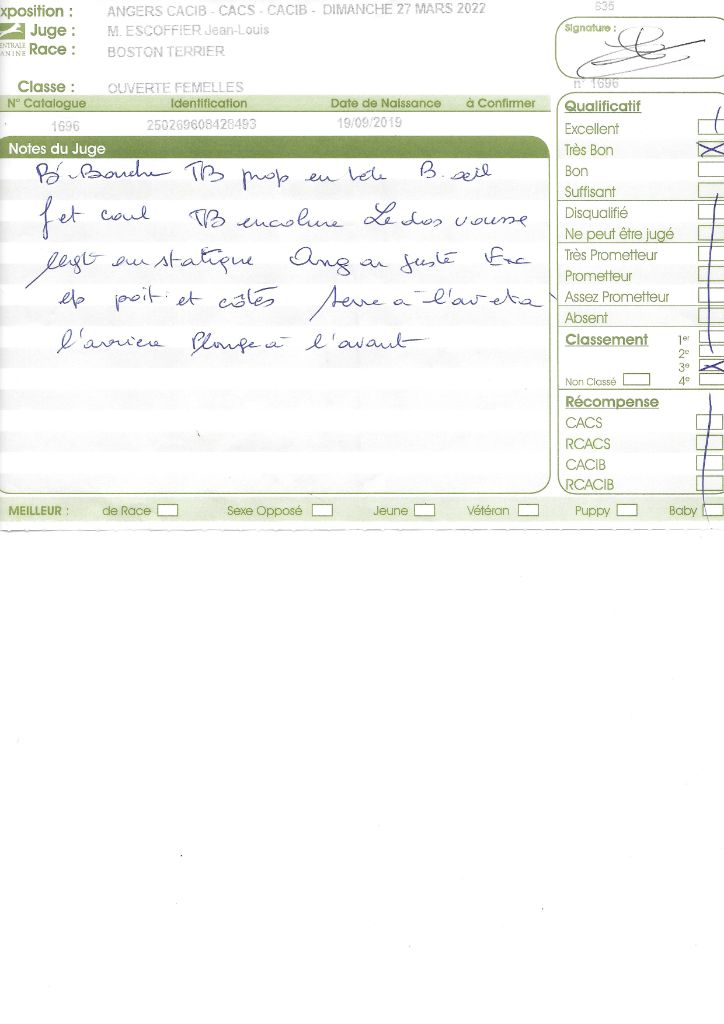 xposition : ANGERS CACIB - CACS - CACIB - DIMANCHE 27 MARS 2022 535
Juge : M. ESCOFFIER Jean-Louis
Race : BOSTON TERRIER
ENTRALE
ANINE
Signature :
n° 1696
Classe : OUVERTE FEMELLES
N° Catalogue Identification Date de Naissance à Confirmer
1696 250269608428493 19/09/2019
Notes du Juge
B. Bouche TB prop en tête B. œil
f et coul TB encolure Le dos vousse
legt en statique Ang ar juste Exc
ep poit. et côtés serre à l'av et a
l'arriere Plonge à l'avant
Qualificatif
Excellent
Très Bon
Bon
Suffisant
Disqualifié
Ne peut être jugé
Très Prometteur
Prometteur
Assez Prometteur
Absent
Classement 1er
2e
3e
Non Classé 4e
Récompense
CACS
RCACS
CACIB
RCACIB
MEILLEUR : de Race Sexe Opposé Jeune Vétéran Puppy Baby